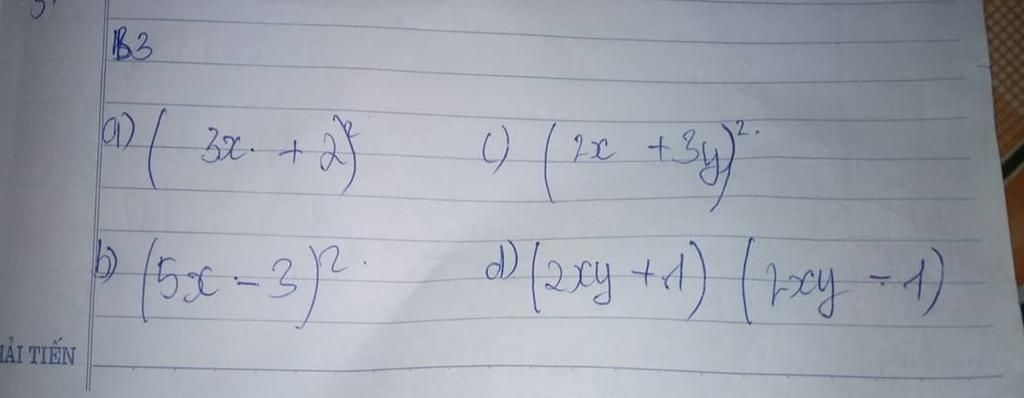 B3
a) (3x + 2)² c) (2x + 3y)²
b) (5x - 3)² d) (2xy + 1) (2xy - 1)
ẢI TIẾN